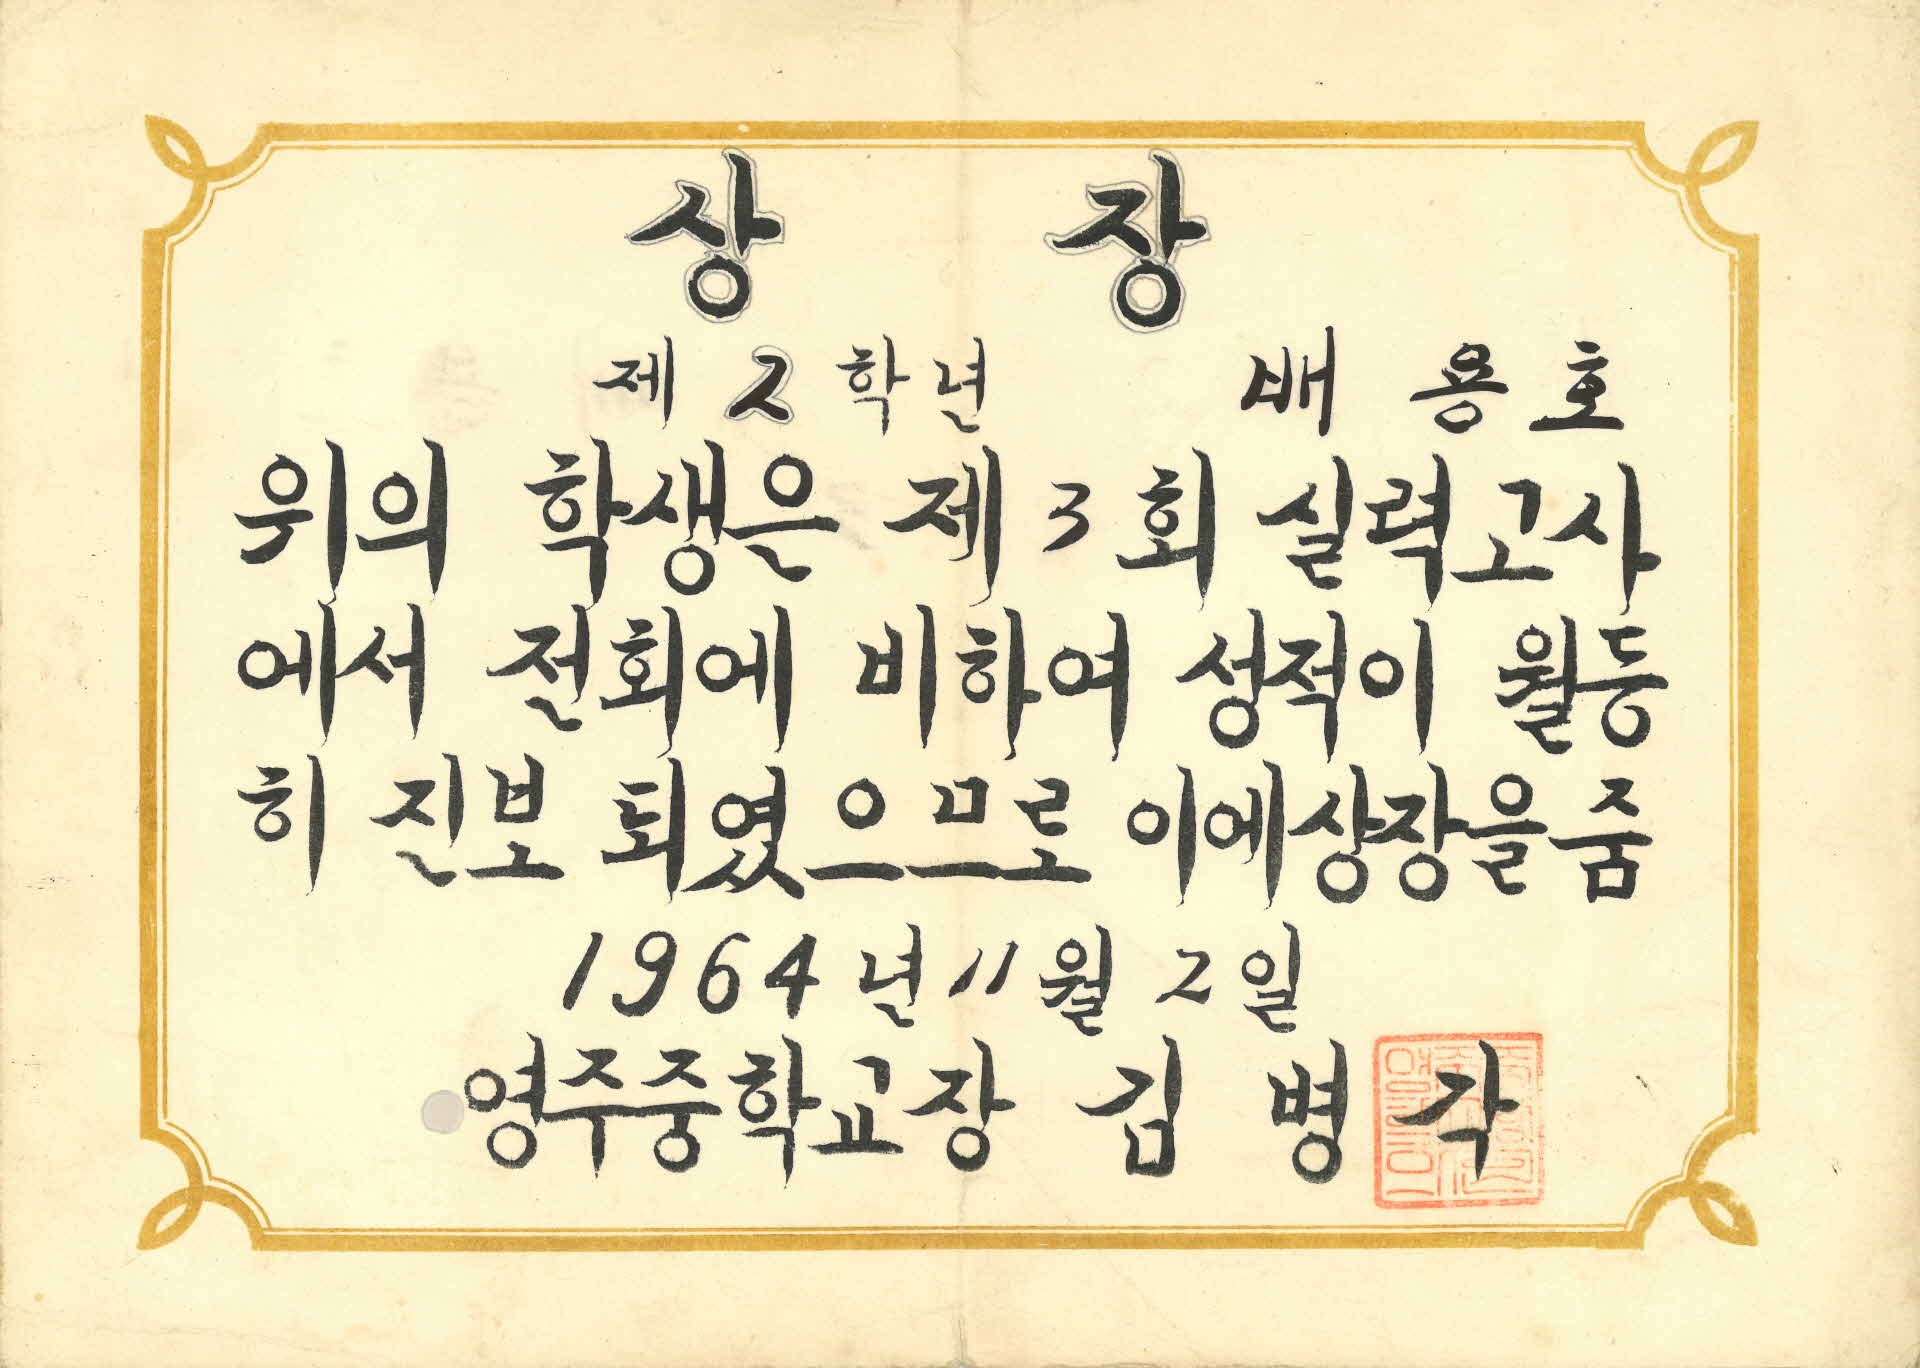 상 장
제 2 학년 배 용 호
위의 학생은 제 3 회 실력고사
에서 전회에 비하여 성적이 월등
히 진보 되였으므로 이에상장을줌
1964년 11월 2일
영주중학교장 김 병 각